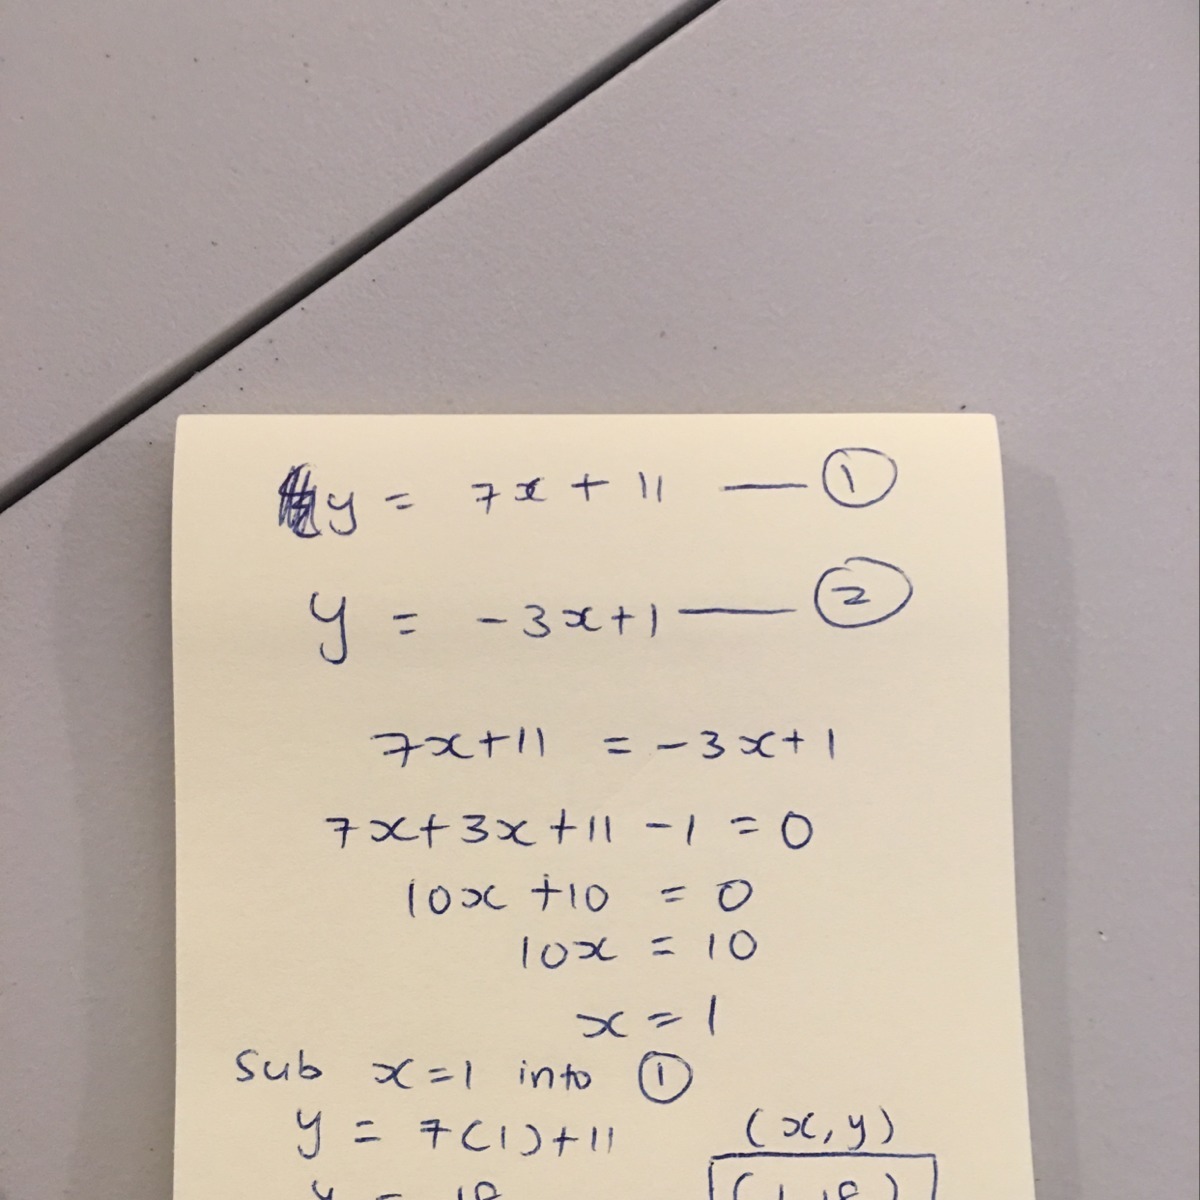 y = 7x + 11 — ①
y = -3x+1 — ②
7x+11 = -3x+1
7x+3x+11-1 = 0
10x+10 = 0
10x = 10
x = 1
Sub x=1 into ①
y = 7(1)+11
(x,y)
y = 18
(1,18)